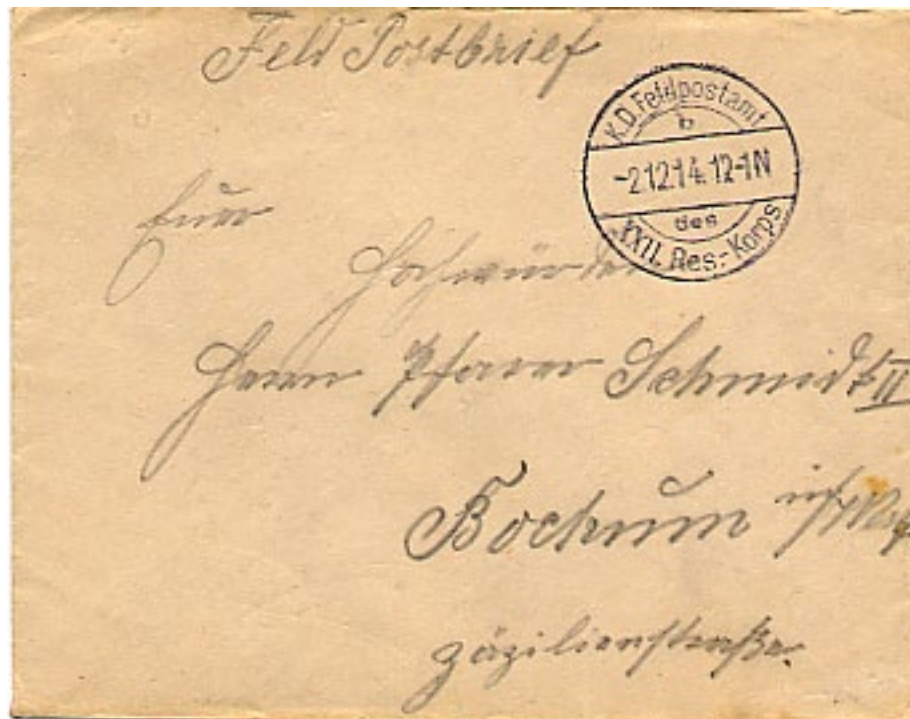 Feld Postbrief
K.D. Feldpostamt
b
-2.12.14. 12-1N
des
XXII. Res.-Korps
Euer
Hochwürden
Herrn Pfarrer Schmidt II
Bochum i/
Zäzilienstraße.